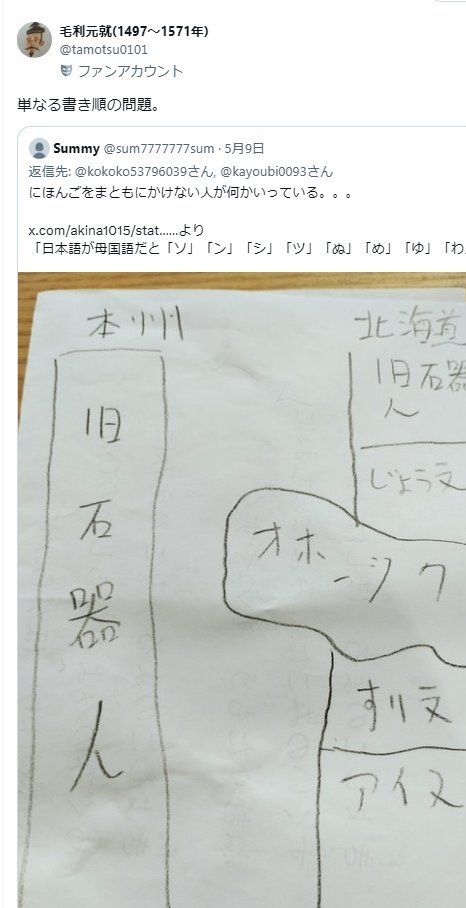 毛利元就(1497～1571年)
@tamotsu0101
ファンアカウント
単なる書き順の問題。
Summy @sum7777777sum · 5月9日
返信先: @kokoko53796039さん, @kayoubi0093さん
にほんごをまともにかけない人が何かいっている。。。
x.com/akina1015/stat......より
「日本語が母国語だと「ソ」「ン」「シ」「ツ」「ぬ」「め」「ゆ」「わ」
本州
旧石器人
北海道
旧石器
人
じょう文
オホーツク
すり文
アイヌ